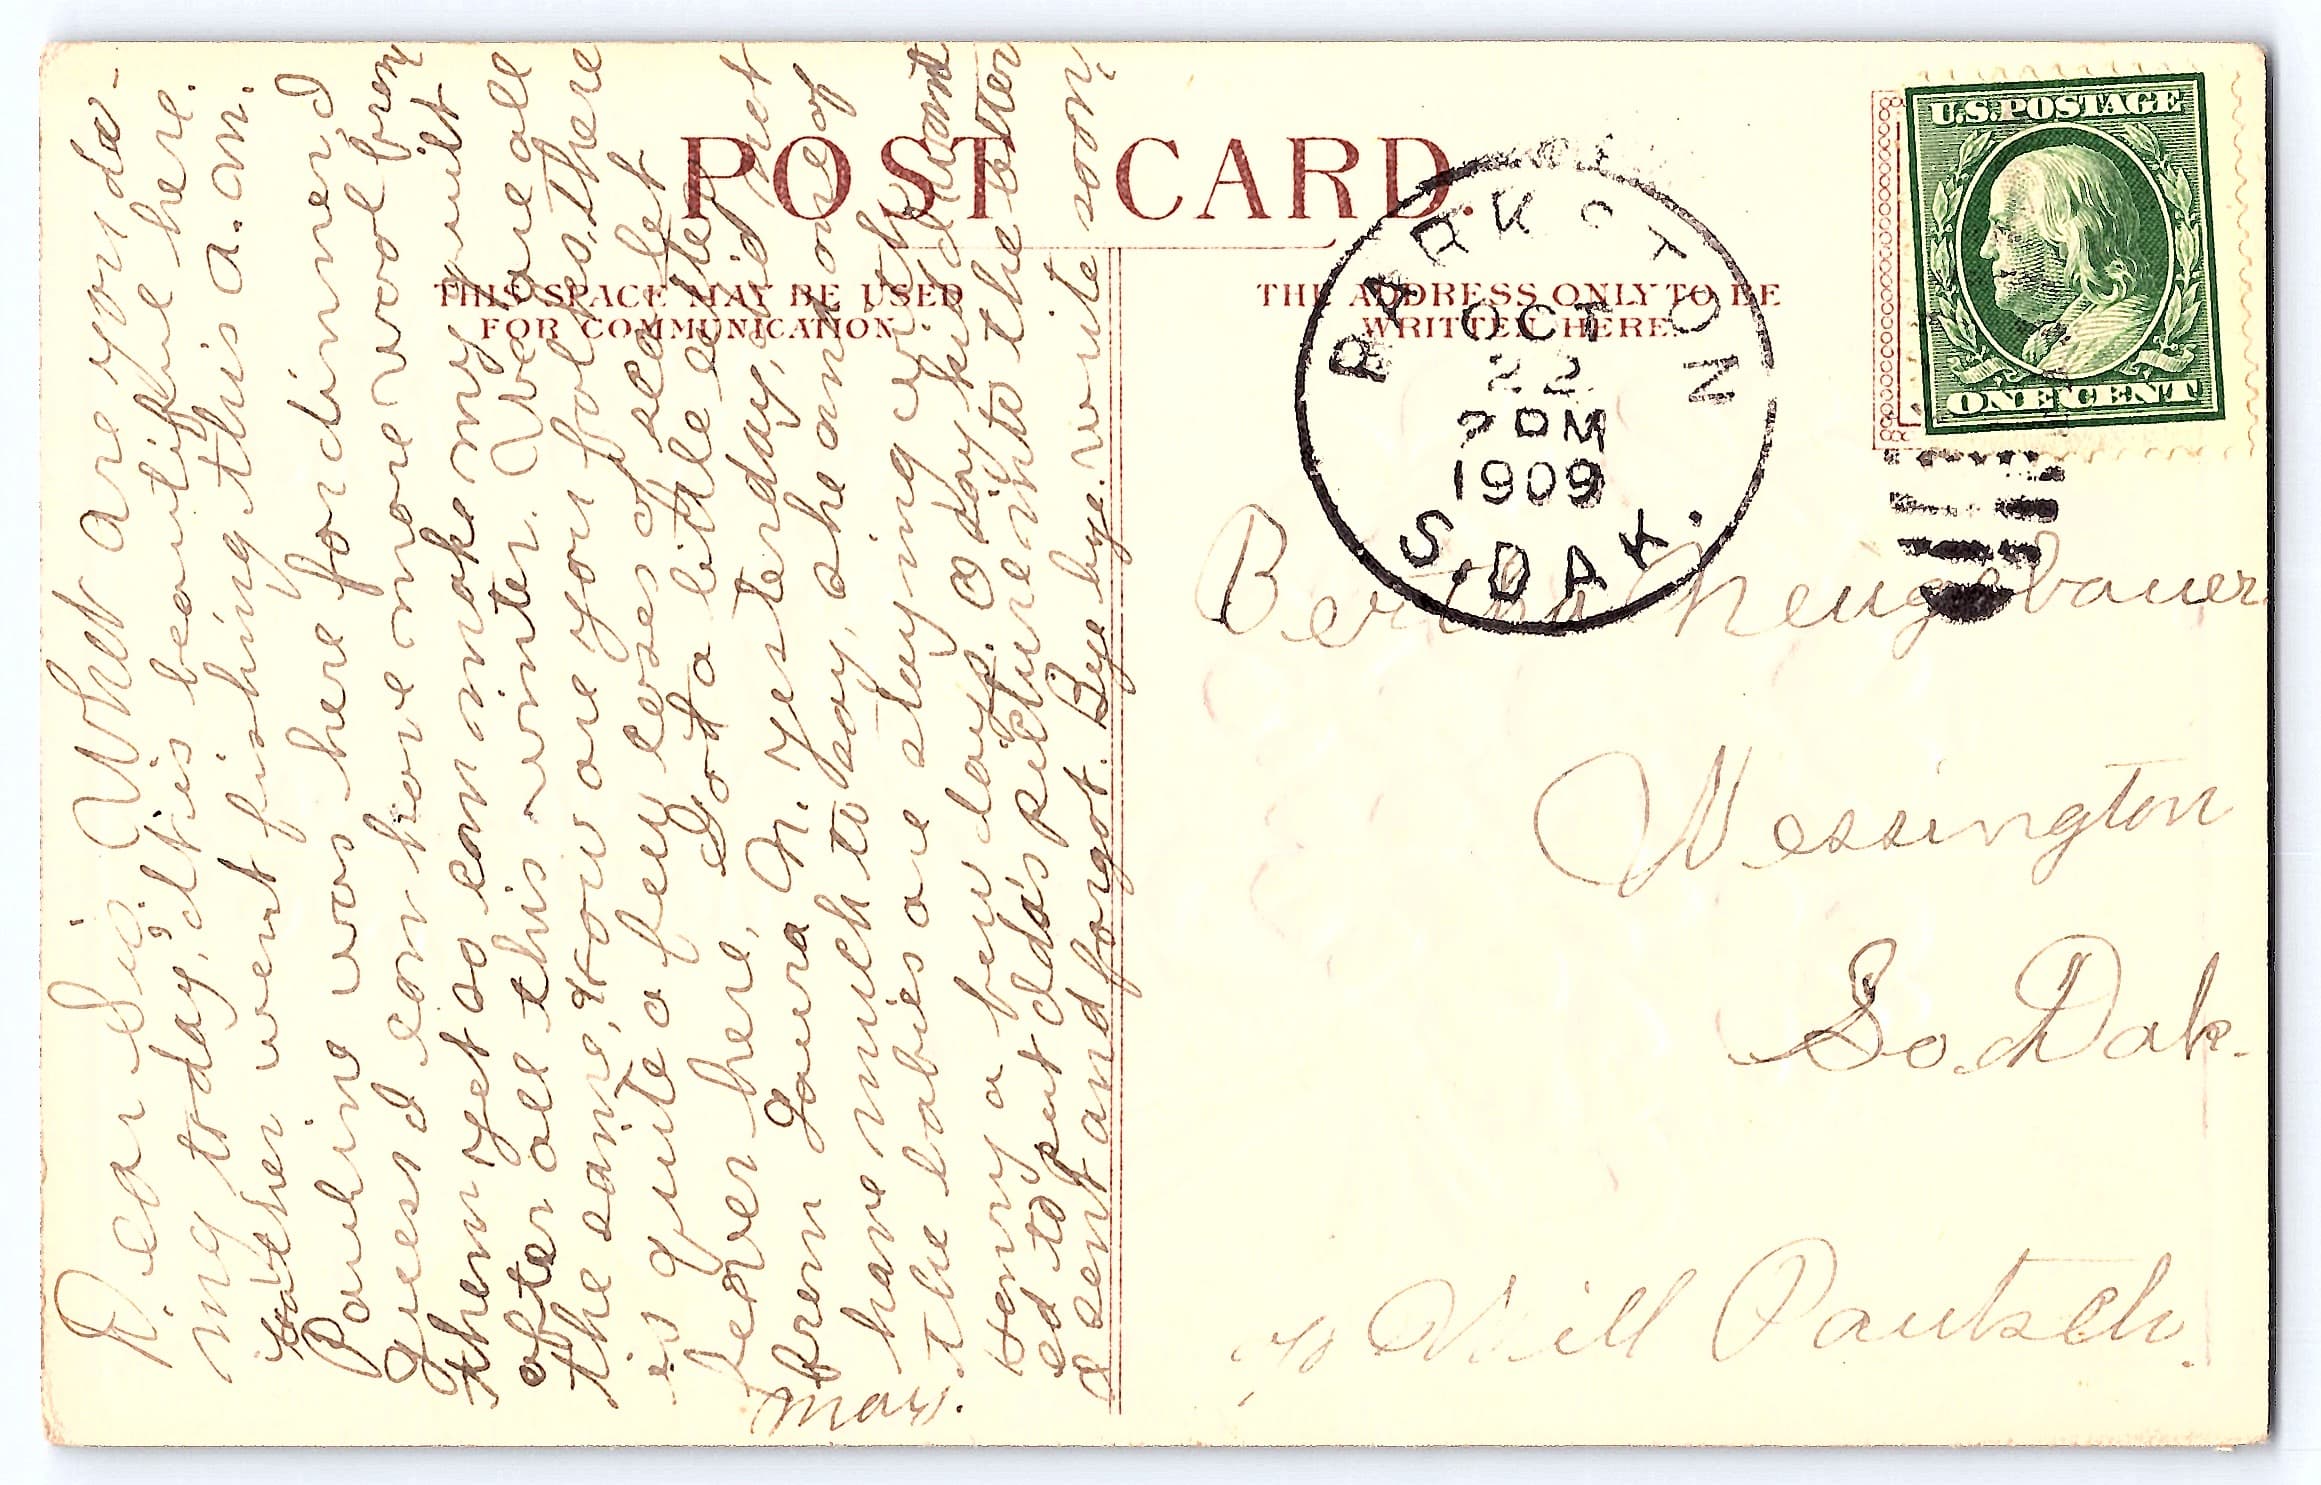 POST CARD.
THIS SPACE MAY BE USED
FOR COMMUNICATION
THE ADDRESS ONLY TO BE
WRITTEN HERE.
U.S. POSTAGE
ONE CENT
PARKSTON
OCT
22
PM
1909
S. DAK.
Dear Sis. What are you do-
ing today, it is beautiful here.
father went fishing this a.m.
Pauline was here for dinner I
guess I can have more wool from
them yet so can make my quilt
after all this winter. We are all
the same, How are you folks, there
is quite a few cases of scarlet
fever here, Got a little letter
from Laura N. yesterday, did not
have much to say, she and one of
the babies are staying with
Henry a few days. O say kid I want
ed to put Ida's picture into the letter
I sent and forgot. Bye bye. write soon.
Mary.
Bertha Neugebauer
Wessington
So. Dak.
c/o Will Pautsch.